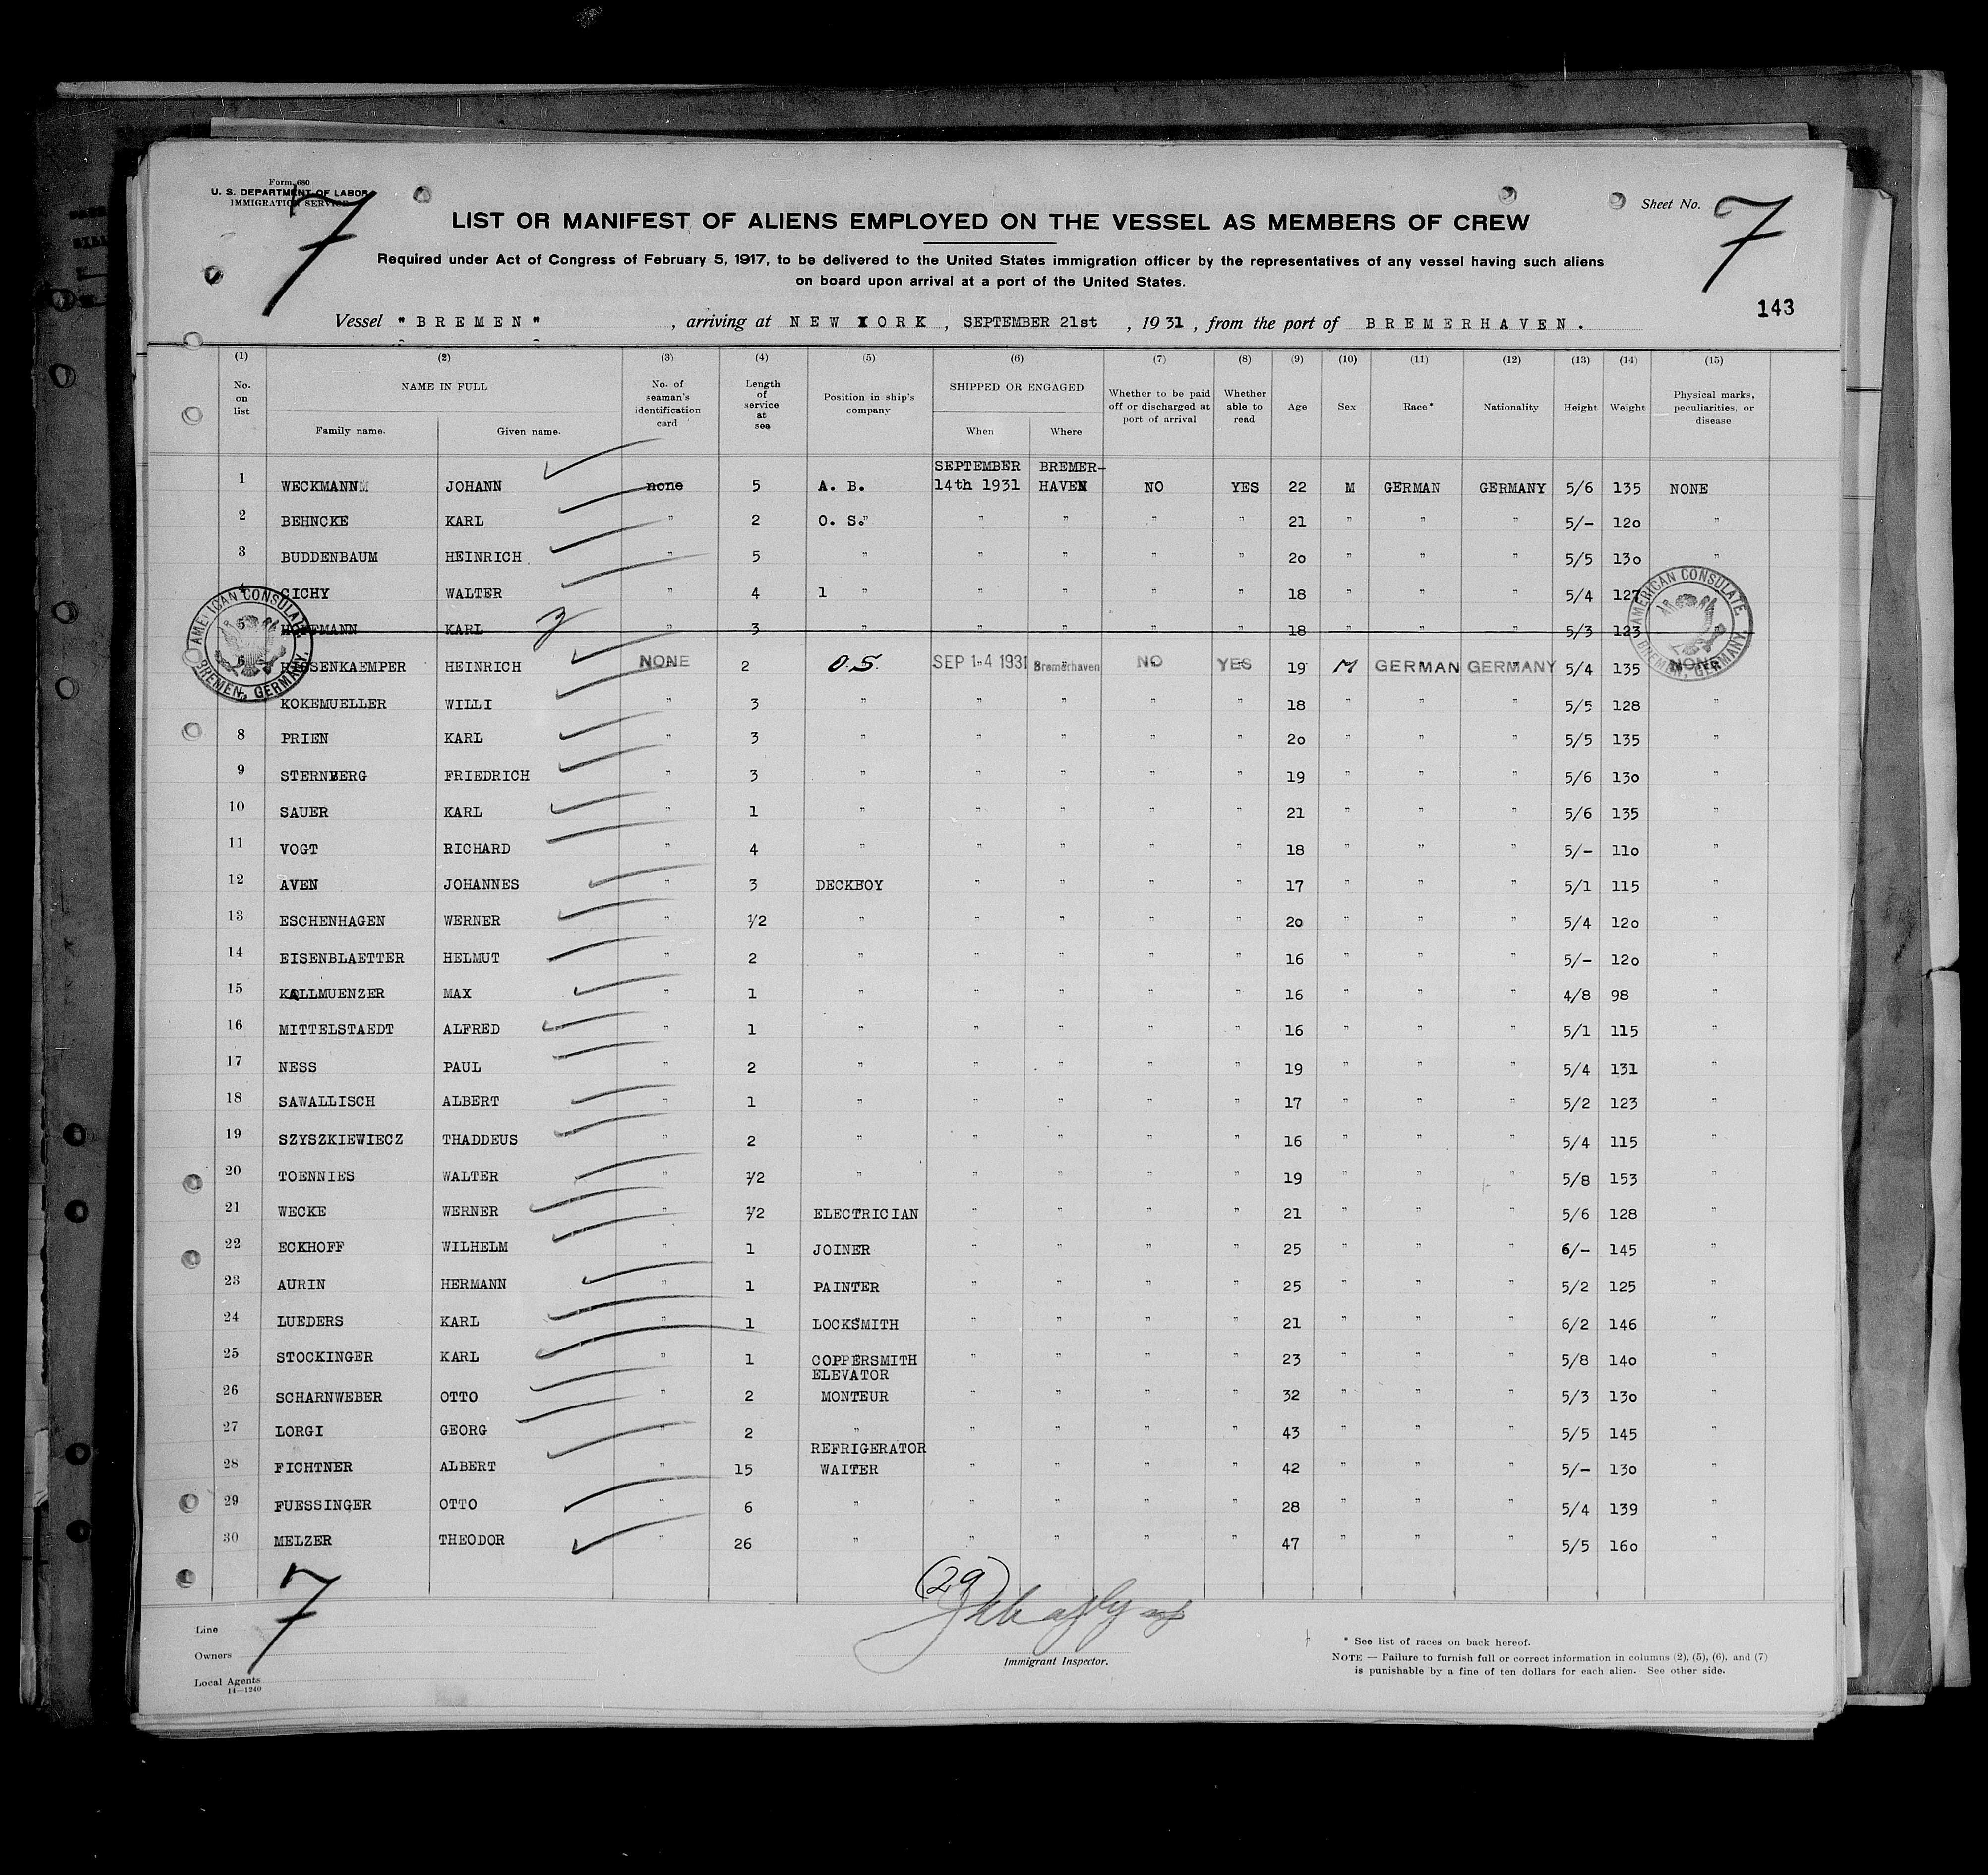 Form 680
U. S. DEPARTMENT OF LABOR
IMMIGRATION SERVICE
7
Sheet No. 7
LIST OR MANIFEST OF ALIENS EMPLOYED ON THE VESSEL AS MEMBERS OF CREW
Required under Act of Congress of February 5, 1917, to be delivered to the United States immigration officer by the representatives of any vessel having such aliens
on board upon arrival at a port of the United States.
143
Vessel "BREMEN", arriving at NEW YORK, SEPTEMBER 21st, 1931, from the port of BREMERHAVEN.
(1) (2) (3) (4) (5) (6) (7) (8) (9) (10) (11) (12) (13) (14) (15)
No. on list NAME IN FULL Family name. Given name. No. of seaman's identification card Length of service at sea Position in ship's company SHIPPED OR ENGAGED When Where Whether to be paid off or discharged at port of arrival Whether able to read Age Sex Race* Nationality Height Weight Physical marks, peculiarities, or disease
SEPTEMBER BREMER-
1 WECKMANN JOHANN none 5 A. B. 14th 1931 HAVEN NO YES 22 M GERMAN GERMANY 5/6 135 NONE
2 BEHNCKE KARL " 2 O. S. " " " " " 21 " " " 5/- 120 "
3 BUDDENBAUM HEINRICH " 5 " " " " " 20 " " " 5/5 130 "
4 CICHY WALTER " 4 1 " " " " " 18 " " " 5/4 127
5 HOFFMANN KARL " 3 " " " " " 18 " " " 5/3 123
6 RIESENKAEMPER HEINRICH NONE 2 O.S. SEP 14 1931 Bremerhaven NO YES 19 M GERMAN GERMANY 5/4 135 NONE
KOKEMUELLER WILLI " 3 " " " " " 18 " " " 5/5 128 "
8 PRIEN KARL " 3 " " " " " 20 " " " 5/5 135 "
9 STERNBERG FRIEDRICH " 3 " " " " " 19 " " " 5/6 130 "
10 SAUER KARL " 1 " " " " " 21 " " " 5/6 135 "
11 VOGT RICHARD " 4 " " " " " 18 " " " 5/- 110 "
12 AVEN JOHANNES " 3 DECKBOY " " " " 17 " " " 5/1 115 "
13 ESCHENHAGEN WERNER " 1/2 " " " " " 20 " " " 5/4 120 "
14 EISENBLAETTER HELMUT " 2 " " " " " 16 " " " 5/- 120 "
15 KALLMUENZER MAX " 1 " " " " " 16 " " " 4/8 98 "
16 MITTELSTAEDT ALFRED " 1 " " " " " 16 " " " 5/1 115 "
17 NESS PAUL " 2 " " " " " 19 " " " 5/4 131 "
18 SAWALLISCH ALBERT " 1 " " " " " 17 " " " 5/2 123 "
19 SZYSZKIEWIECZ THADDEUS " 2 " " " " " 16 " " " 5/4 115 "
20 TOENNIES WALTER " 1/2 " " " " " 19 " " " 5/8 153 "
21 WECKE WERNER " 1/2 ELECTRICIAN " " " " 21 " " " 5/6 128 "
22 ECKHOFF WILHELM " 1 JOINER " " " " 25 " " " 6/- 145 "
23 AURIN HERMANN " 1 PAINTER " " " " 25 " " " 5/2 125 "
24 LUEDERS KARL " 1 LOCKSMITH " " " " 21 " " " 6/2 146 "
25 STOCKINGER KARL " 1 COPPERSMITH " " " " 23 " " " 5/8 140 "
ELEVATOR
26 SCHARNWEBER OTTO " 2 MONTEUR " " " " 32 " " " 5/3 130 "
27 LORGI GEORG " 2 " " " " " 43 " " " 5/5 145 "
REFRIGERATOR
28 FICHTNER ALBERT " 15 WAITER " " " " 42 " " " 5/- 130 "
29 FUESSINGER OTTO " 6 " " " " " 28 " " " 5/4 139 "
30 MELZER THEODOR " 26 " " " " " 47 " " " 5/5 160 "
AMERICAN CONSULATE BREMEN, GERMANY.
AMERICAN CONSULATE BREMEN, GERMANY.
7
(29)
Line
Owners
Local Agents
14—1240
Immigrant Inspector.
* See list of races on back hereof.
NOTE — Failure to furnish full or correct information in columns (2), (5), (6), and (7)
is punishable by a fine of ten dollars for each alien. See other side.